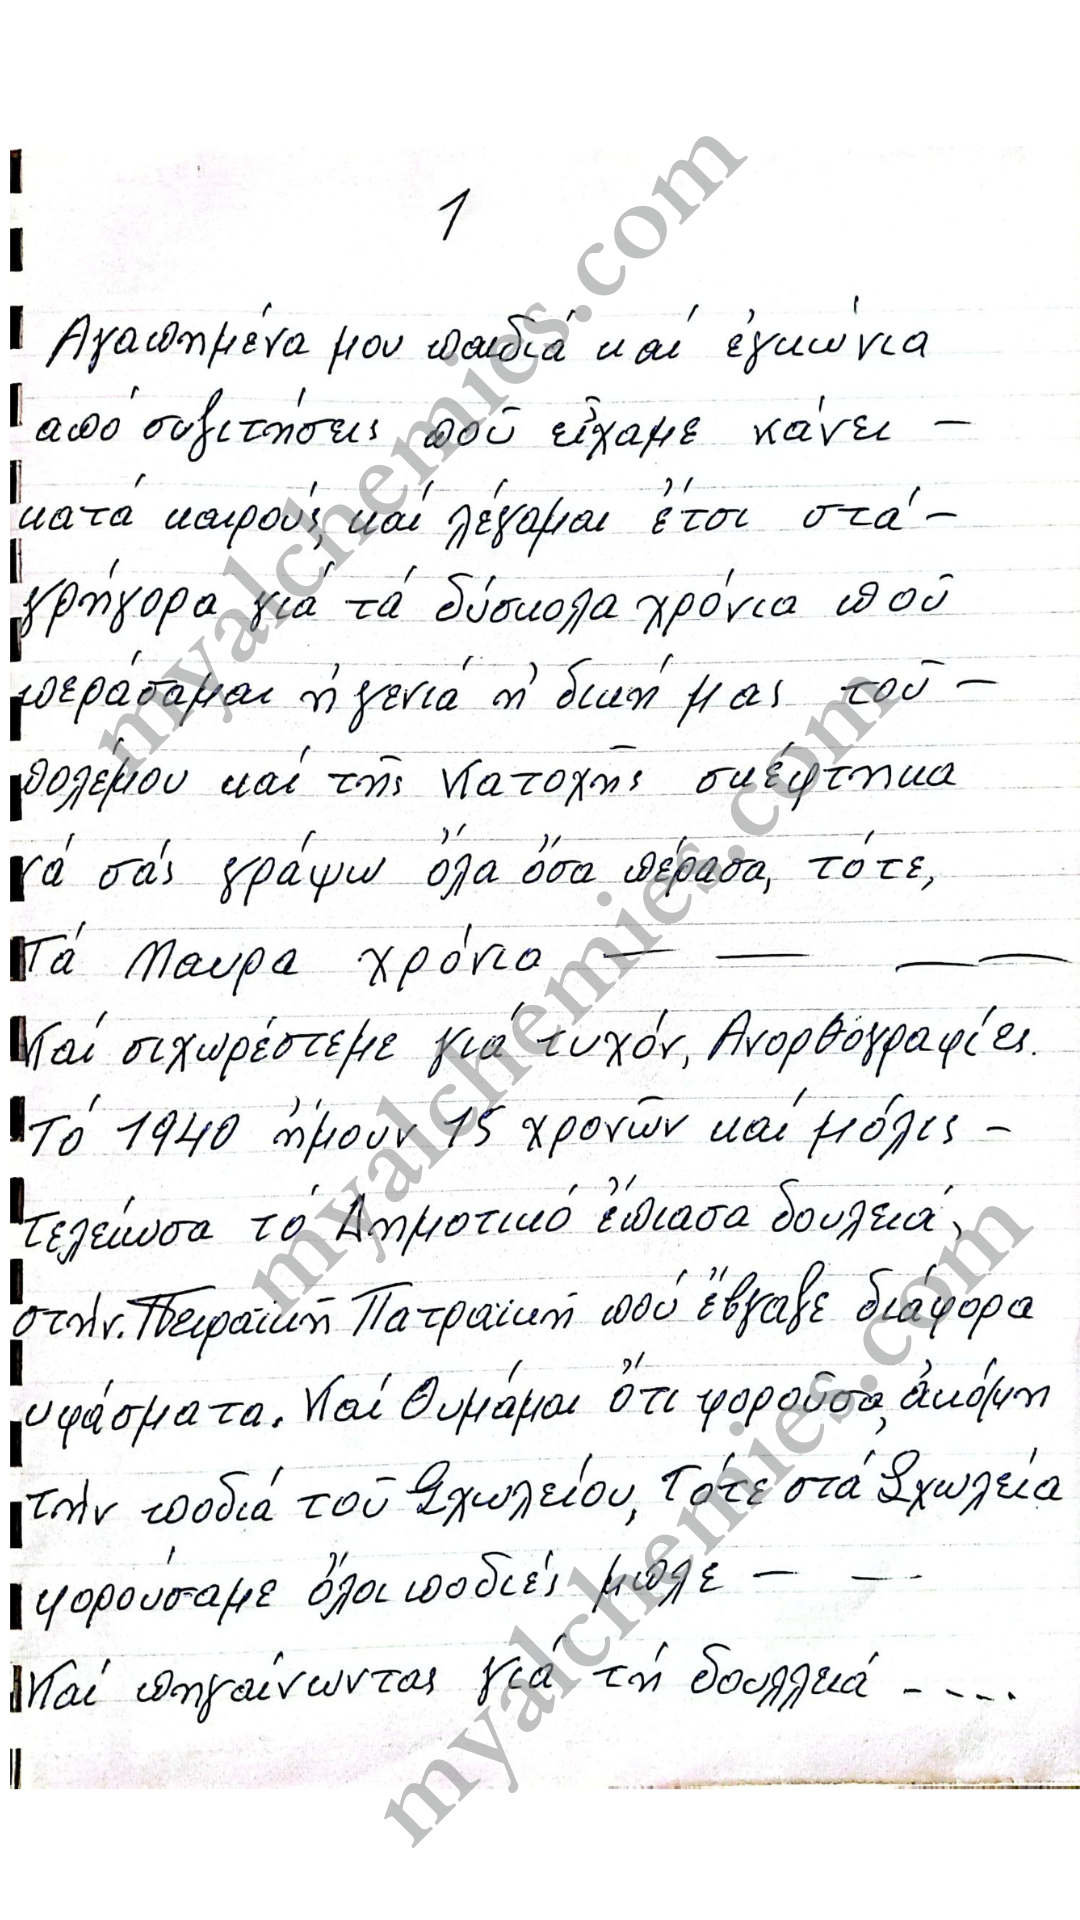 1
Αγαπημένα μου παιδιά καί ἐγκώνια
από συζιτήσεις πού εἴχαμε κάνει –
κατά καιρούς καί λέγαμαι ἔτσι στά –
γρήγορα γιά τά δύσκολα χρόνια πού
περάσαμαι ἡ γενιά ἡ δική μας τοῦ –
πολέμου καί τῆς Κατοχῆς σκέφτηκα
νά σάς γράψω ὅλα ὅσα πέρασα, τότε,
Τά Μαυρα χρόνια — — — —
Καί σιχωρέστεμε γιά τυχόν, Ανορθόγραφίες.
Τό 1940 ἠμουν 15 χρονῶν καί μόλις –
τελείωσα τό Δημοτικό ἔπιασα δουλειά,
στήν. Πειραϊκή Πατραϊκή πού ἔβγαζε διάφορα
υφάσματα. Καί θυμάμαι ὅτι φοροῦσα, ἀκόμη
τήν ποδιά τοῦ Σχωλείου, Τότε στά Σχωλεία
φορούσαμε ὅλοι ποδιές μπλε — —
Καί πηγαίνωντας γιά τή δουλλειά - - - . .
myalchemies.com
myalchemies.com
myalchemies.com